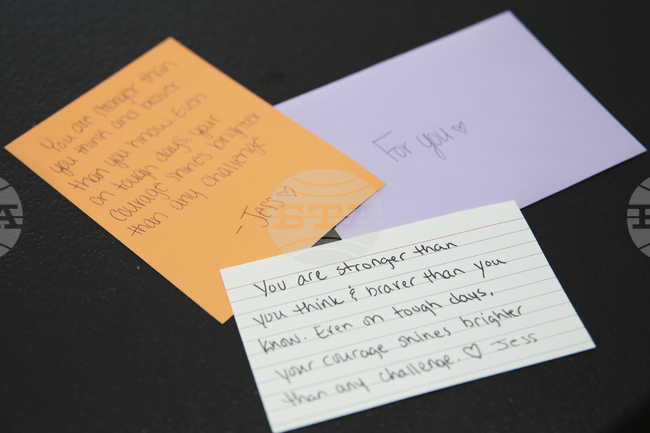 You are stronger than
you think and braver
than you know. Even
on tough days, your
courage shines brighter
than any challenge
- Jess ♡
For you ♡
You are stronger than
you think & braver than you
know. Even on tough days,
your courage shines brighter
than any challenge. ♡ Jess
BTA